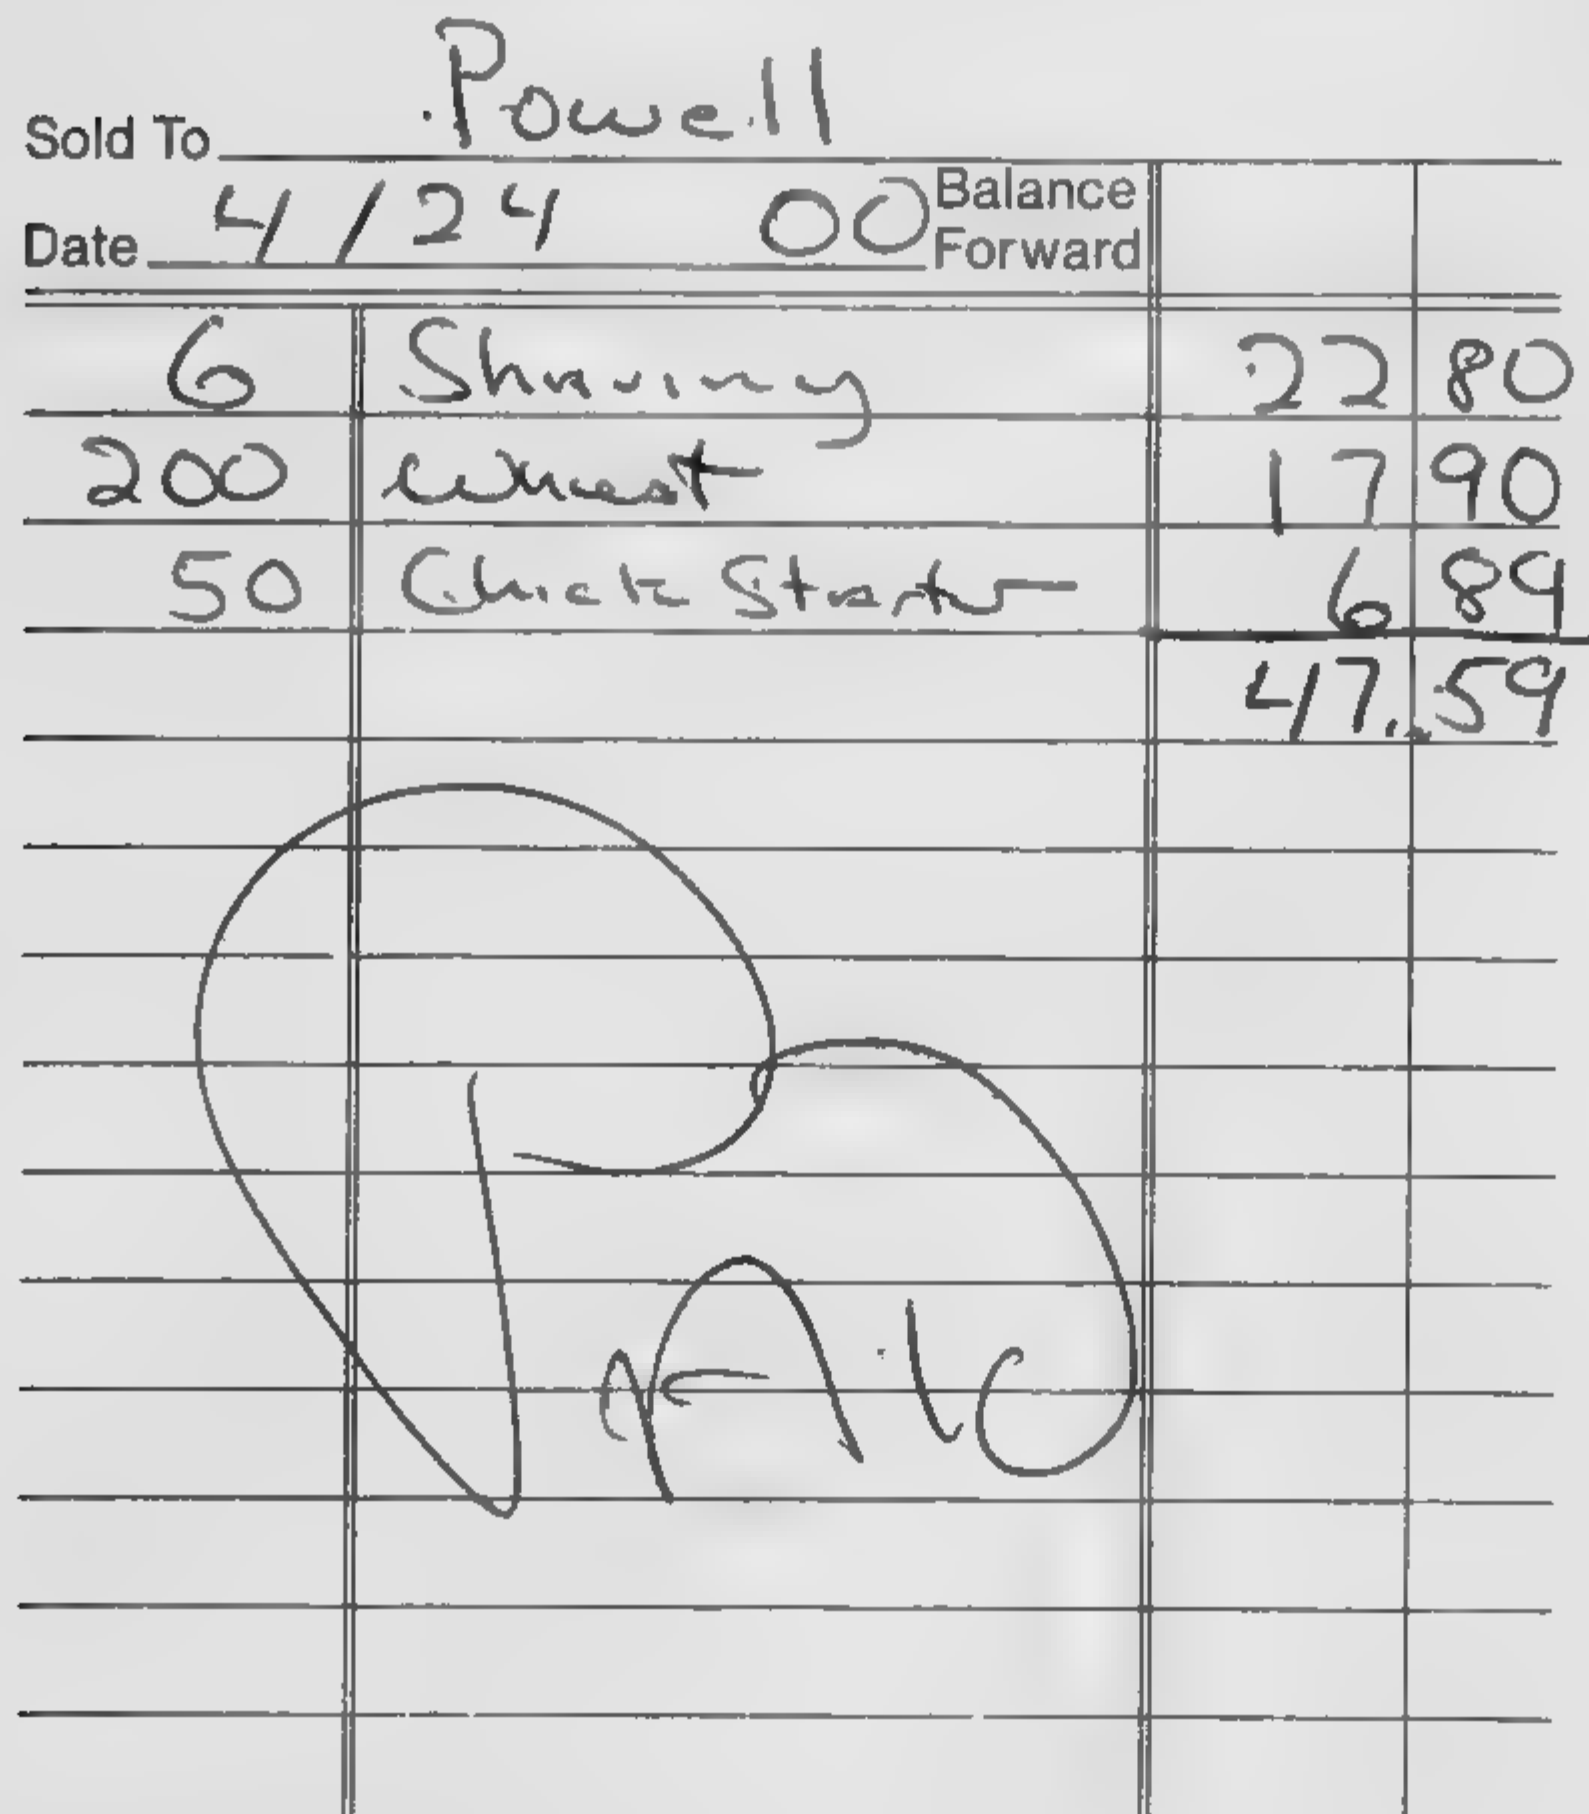 Sold To Powell
Date 4/24 00 Balance Forward
6 Shaving 22 80
200 Wheat 17 90
50 Chick Starter 6 89
47.59
PAID